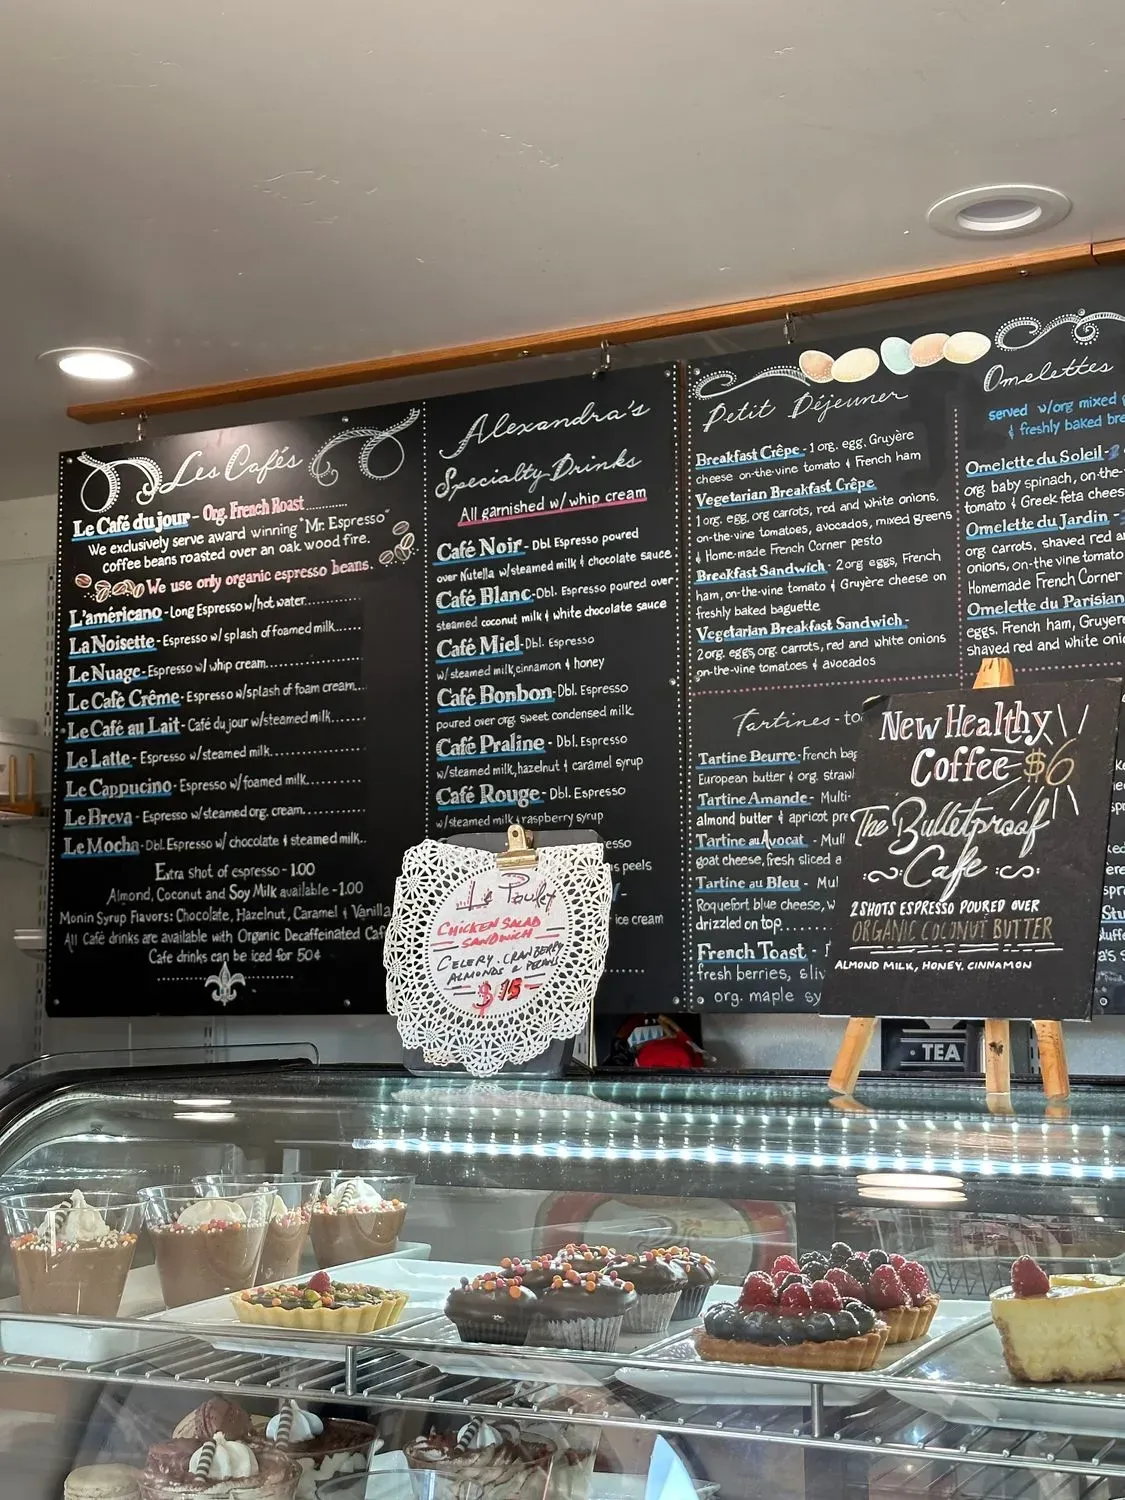 Les Cafés
Le Café du jour - Org. French Roast............
We exclusively serve award winning "Mr. Espresso"
coffee beans roasted over an oak wood fire.
We use only organic espresso beans.
L'américano - Long Espresso w/hot water............
La Noisette - Espresso w/ splash of foamed milk......
Le Nuage - Espresso w/ whip cream....................
Le Café Crême - Espresso w/splash of foam cream....
Le Café au Lait - Café du jour w/steamed milk.......
Le Latte - Espresso w/steamed milk....................
Le Cappucino - Espresso w/foamed milk............
Le Breva - Espresso w/steamed org. cream............
Le Mocha - Dbl. Espresso w/ chocolate & steamed milk..
Extra shot of espresso - 1.00
Almond, Coconut and Soy Milk available - 1.00
Monin Syrup Flavors: Chocolate, Hazelnut, Caramel & Vanilla
All Café drinks are available with Organic Decaffeinated
Cafe drinks can be iced for 50¢
Alexandra's
Specialty Drinks
All garnished w/ whip cream
Café Noir - Dbl Espresso poured
over Nutella w/steamed milk & chocolate sauce
Café Blanc - Dbl. Espresso poured over
steamed coconut milk & white chocolate sauce
Café Miel - Dbl. Espresso
w/ steamed milk, cinnamon & honey
Café Bonbon - Dbl. Espresso
poured over org. sweet condensed milk
Café Praline - Dbl. Espresso
w/steamed milk, hazelnut & caramel syrup
Café Rouge - Dbl. Espresso
w/steamed milk & raspberry syrup
peels
ice cream
Petit Déjeuner
Breakfast Crêpe - 1 org. egg, Gruyère
cheese on-the-vine tomato & French ham
Vegetarian Breakfast Crêpe
1 org. egg, org carrots, red and white onions,
on-the-vine tomatoes, avocados, mixed greens
& Home-made French Corner pesto
Breakfast Sandwich - 2 org eggs, French
ham, on-the-vine tomato & Gruyère cheese on
freshly baked baguette
Vegetarian Breakfast Sandwich -
2 org. eggs, org. carrots, red and white onions
on-the-vine tomatoes & avocados
Tartines -
Tartine Beurre - French
European butter & org.
Tartine Amande - Multi-
almond butter & apricot
Tartine au Avocat -
goat cheese, fresh sliced
Tartine au Bleu -
Roquefort blue cheese,
drizzled on top
French Toast -
fresh berries,
org. maple
Omelettes
served w/org mixed
& freshly baked
Omelette du Soleil -
org. baby spinach, on-the-
tomato & Greek feta
Omelette du Jardin -
org carrots, shaved red
onions, on-the-vine tomato
Homemade French Corner
Omelette du Parisian
eggs, French ham,
shaved red and white
Le Poulet
CHICKEN SALAD
SANDWICH
CELERY, CRANBERRY
ALMONDS & PECANS
$15
New Healthy
Coffee $6
The Bulletproof
Cafe
2 SHOTS ESPRESSO POURED OVER
ORGANIC COCONUT BUTTER
ALMOND MILK, HONEY, CINNAMON
TEA